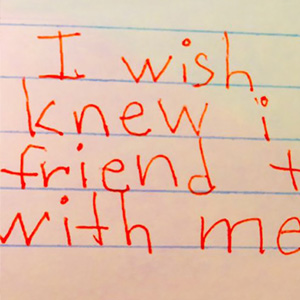 I wish
knew i
friend t
with me